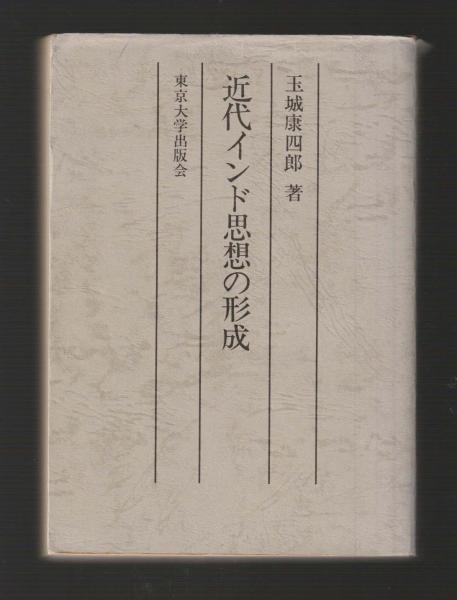 玉城康四郎 著
近代インド思想の形成
東京大学出版会